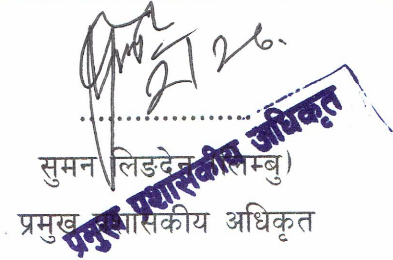 सुमन लिङदेन (लिम्बु)
प्रमुख प्रशासकीय अधिकृत
प्रमुख प्रशासकीय अधिकृत